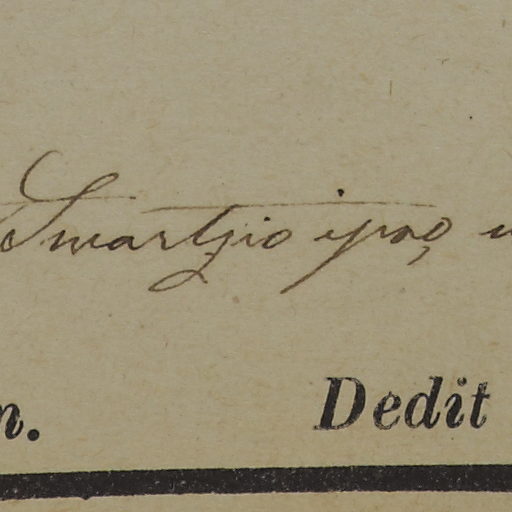 Swartzio ipso,
n. Dedit